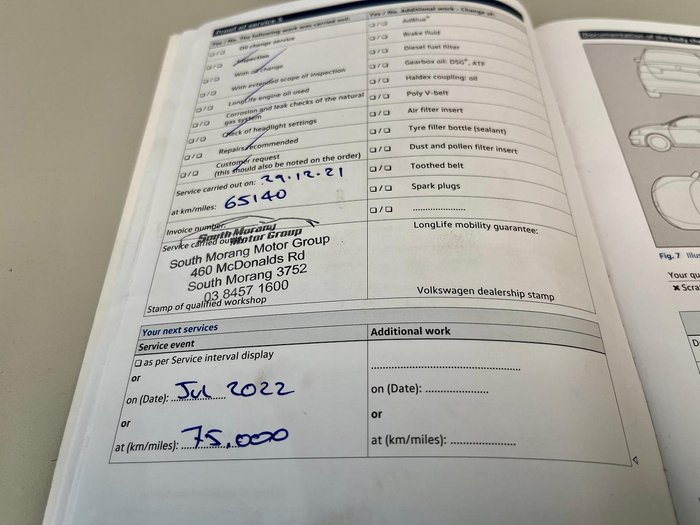 Proof of service 5
Yes / No The following work was carried out:
❑ / ❑ Oil change service
❑ / ❑ Inspection
❑ / ❑ With oil change
❑ / ❑ With extended scope of inspection
❑ / ❑ LongLife engine oil used
❑ / ❑ Corrosion and leak checks of the natural
gas system
❑ / ❑ Check of headlight settings
❑ / ❑ Repairs recommended
❑ / ❑ Customer request
(this should also be noted on the order)
Service carried out on: 29.12.21
at km/miles: 65140
Invoice number:
South Morang
Motor Group
Service carried out
South Morang Motor Group
460 McDonalds Rd
South Morang 3752
03 8457 1600
Stamp of qualified workshop
Yes / No Additional work - Change of:
❑ / ❑ AdBlue®
❑ / ❑ Brake fluid
❑ / ❑ Diesel fuel filter
❑ / ❑ Gearbox oil: DSG®, ATF
❑ / ❑ Haldex coupling: oil
❑ / ❑ Poly V-belt
❑ / ❑ Air filter insert
❑ / ❑ Tyre filler bottle (sealant)
❑ / ❑ Dust and pollen filter insert
❑ / ❑ Toothed belt
❑ / ❑ Spark plugs
❑ / ❑ ....................
LongLife mobility guarantee:
Volkswagen dealership stamp
Your next services
Service event
❑ as per Service interval display
or
on (Date): Jul 2022
or
at (km/miles): 75,000
Additional work
on (Date): ....................
or
at (km/miles): ....................
Documentation of the body
Fig. 7
Your